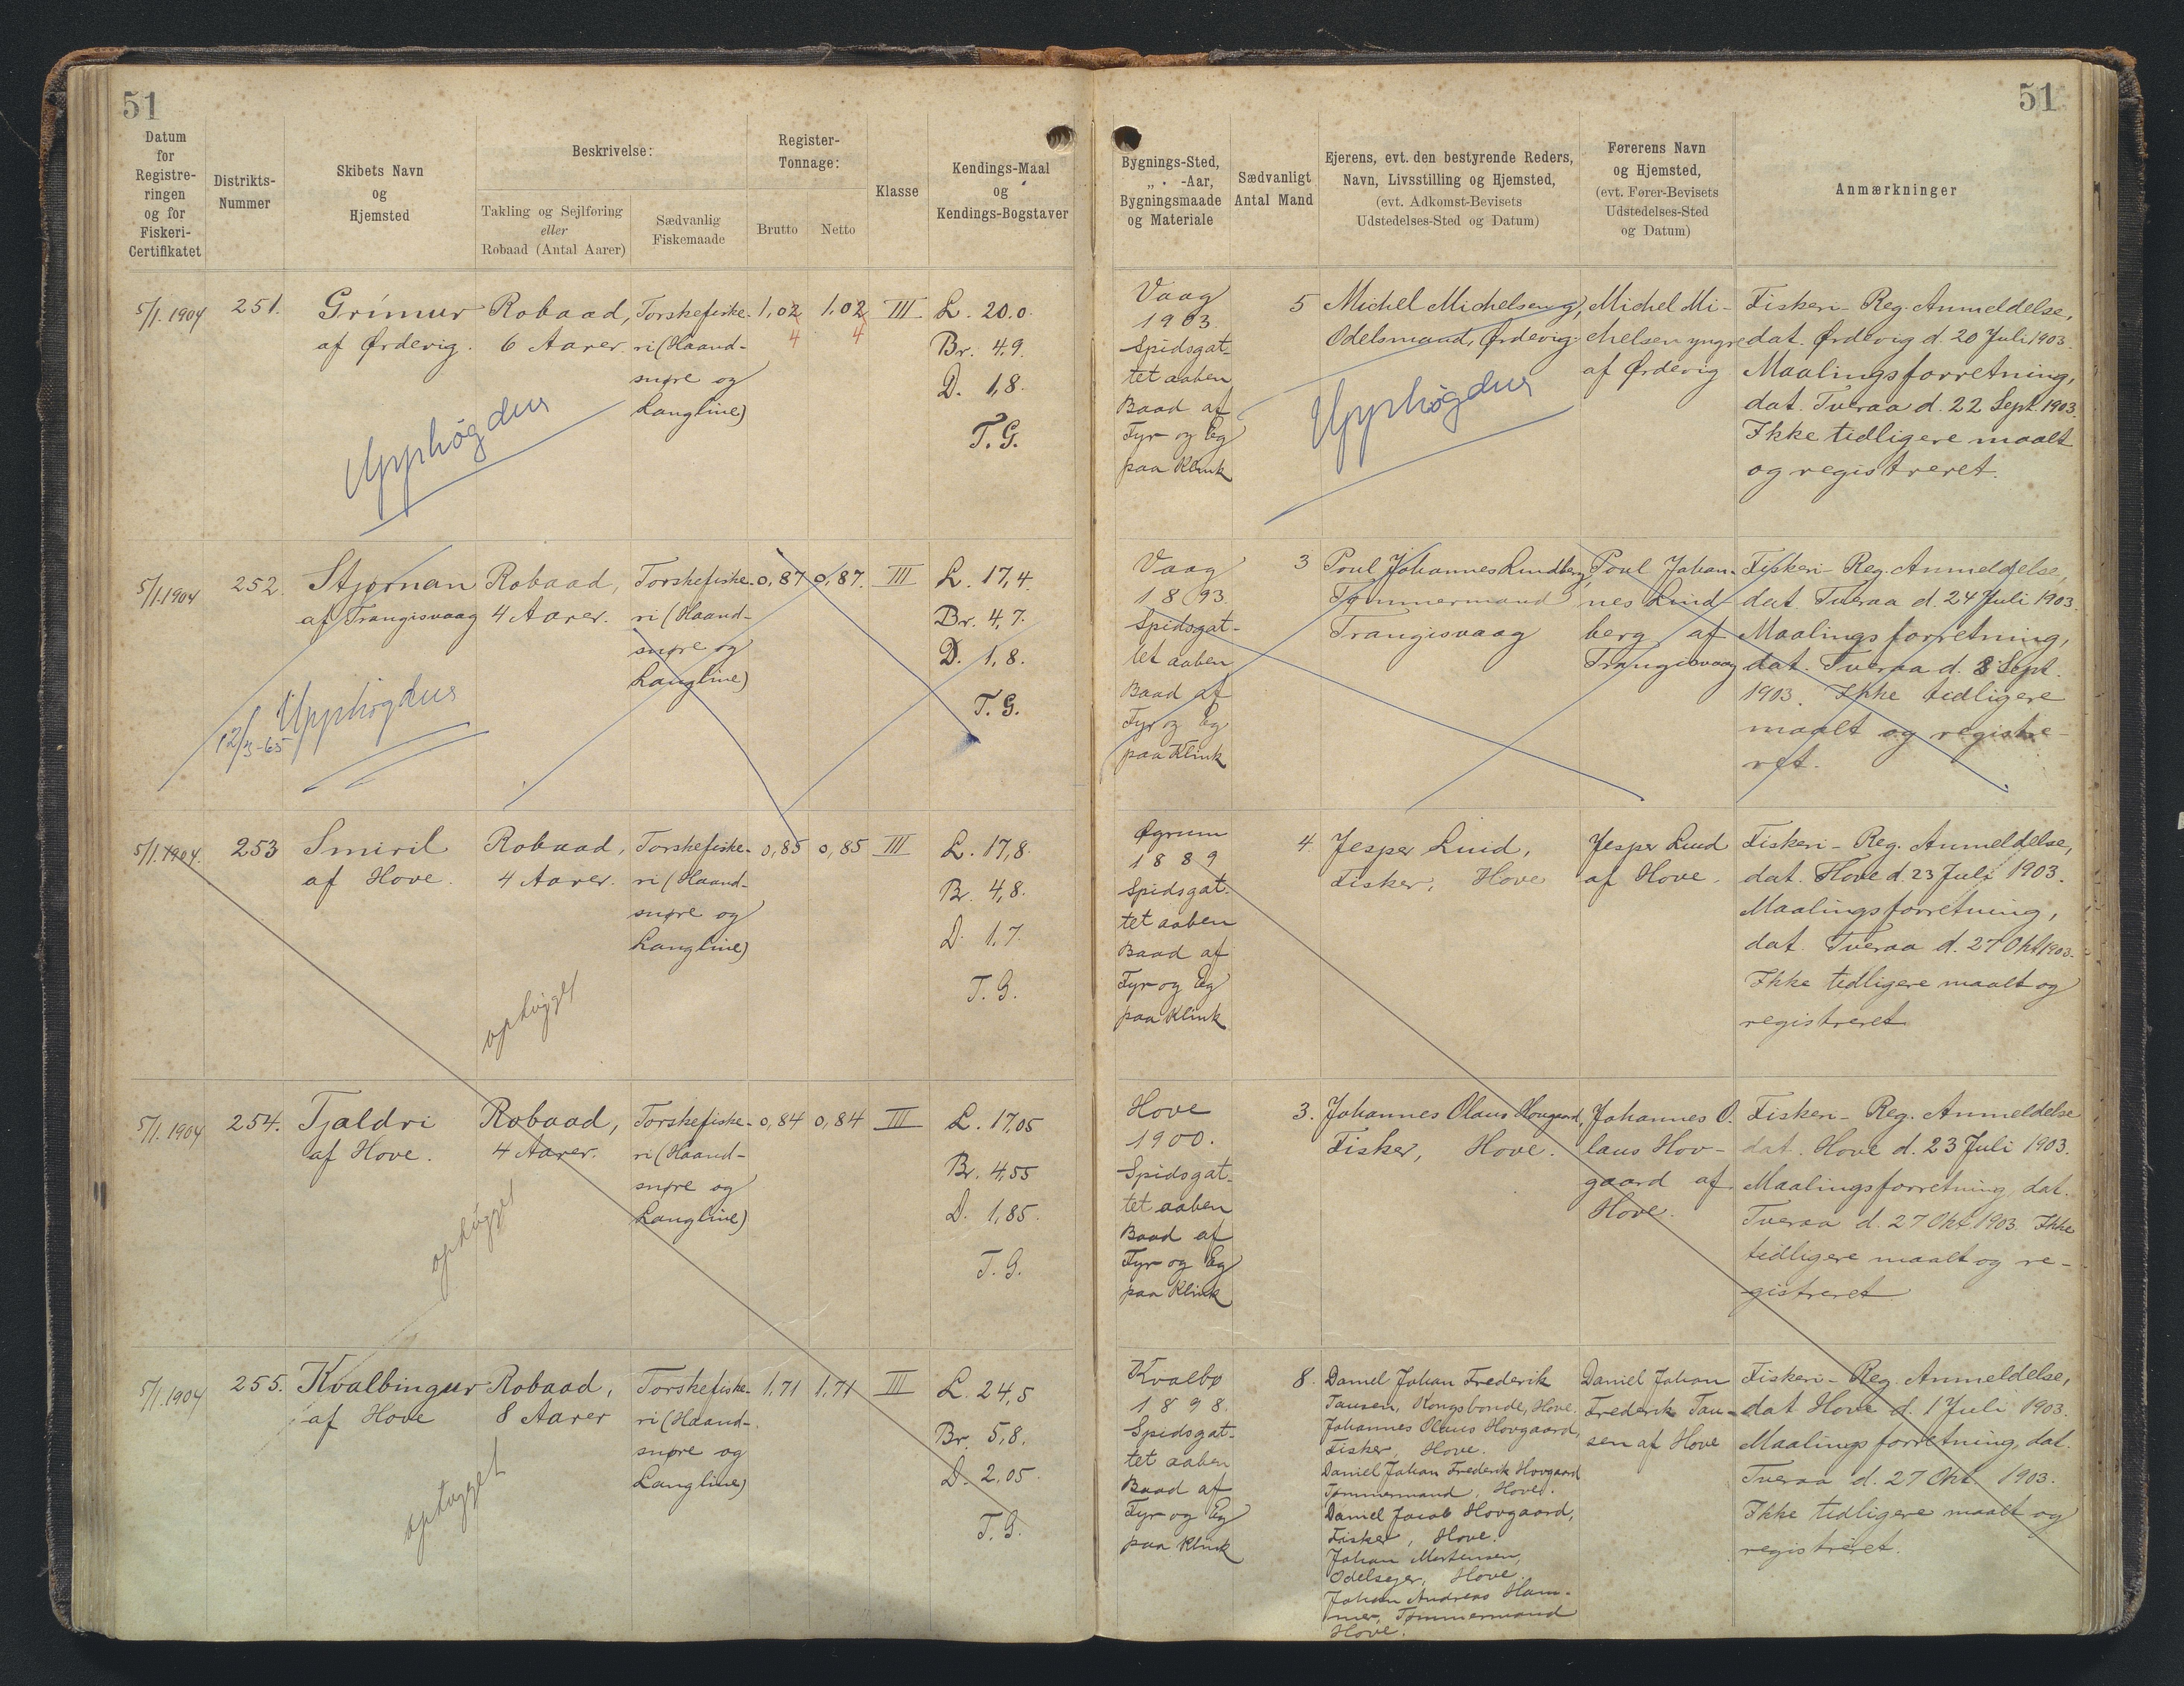 51
51
Datum
for
Registre-
ringen
og for
Fiskeri-
Certifikatet
Distrikts-
Nummer
Skibets Navn
og
Hjemsted
Beskrivelse:
Takling og Sejlføring
eller
Robaad (Antal Aarer)
Sædvanlig
Fiskemaade
Register-
Tonnage:
Brutto
Netto
Klasse
Kendings-Maal
og
Kendings-Bogstaver
Bygnings-Sted,
„ -Aar,
Bygningsmaade
og Materiale
Sædvanligt
Antal Mand
Ejerens, evt. den bestyrende Reders,
Navn, Livsstilling og Hjemsted,
(evt. Adkomst-Bevisets
Udstedelses-Sted og Datum)
Førerens Navn
og Hjemsted,
(evt. Fører-Bevisets
Udstedelses-Sted
og Datum)
Anmærkninger
5/1.1904
251.
Grímur
af Ørdevig.
Robaad,
6 Aarer.
Torskefiske-
ri (Haand-
snøre og
Langline)
1,02
4
1,02
4
III
L. 20.0.
Br. 4,9.
D. 1,8.
T.G.
Upphøgdur
Vaag
1903.
Spidsgat-
tet aaben
Baad af
Fyr og Eg
paa Klink
5
Michel Michelsen yg,
Odelsmand, Ørdevig.
Upphøgdur
Michel Mi-
chelsen yngre
af Ørdevig
Fiskeri-Reg. Anmeldelse,
dat. Ørdevig d. 20 Juli 1903.
Maalingsforretning,
dat. Tveraa d. 22 Sept. 1903.
Ikke tidligere maalt
og registreret.
5/1.1904
252.
Stjørnan
af Trangisvaag
Robaad,
4 Aarer.
Torskefiske-
ri (Haand-
snøre og
Langline)
0,87
0,87.
III
L. 17,4.
Br. 4,7.
D. 1,8.
T.G.
Upphøgdur
12/3-65
Vaag
1893.
Spidsgat-
tet aaben
Baad af
Fyr og Eg
paa Klink
3
Poul Johannes Lindberg,
Tømmermand
Trangisvaag
Poul Johan-
nes Lind-
berg af
Trangisvaag
Fiskeri-Reg. Anmeldelse,
dat. Tveraa d. 24 Juli 1903.
Maalingsforretning,
dat. Tveraa d. 8 Sept.
1903. Ikke tidligere
maalt og registre-
ret.
5/1.1904.
253
Smiril
af Hove.
Robaad,
4 Aarer.
Torskefiske-
ri (Haand-
snøre og
Langline)
0,85
0,85
III
L. 17,8.
Br. 4,8.
D. 1,7.
T.G.
ophøgget
Øgrum
1889
Spidsgat-
tet aaben
Baad af
Fyr og Eg
paa Klink
4.
Jesper Luid,
Fisker, Hove
Jesper Luid
af Hove.
Fiskeri-Reg. Anmeldelse,
dat. Hove d. 23 Juli 1903.
Maalingsforretning,
dat. Tveraa d. 27 Okt 1903.
Ikke tidligere maalt og
registreret
5/1.1904
254.
Tjaldri
af Hove.
Robaad,
4 Aarer.
Torskefiske-
ri (Haand-
snøre og
Langline)
0,84
0,84
III
L. 17,05
Br. 4,55
D. 1,85.
T.G.
ophøgget
Hove
1900.
Spidsgat-
tet aaben
Baad af
Fyr og Eg
paa Klink
3.
Johannes Olaus Hovgaard,
Fisker, Hove.
Johannes O.
laus Hov-
gaard af
Hove.
Fiskeri-Reg. Anmeldelse
dat. Hove d. 23 Juli 1903.
Maalingsforretning, dat.
Tveraa d. 27 Okt. 1903. Ikke
tidligere maalt og re-
gistreret
5/1.1904
255.
Kvalbingur
af Hove
Robaad,
8 Aarer
Torskefiske-
ri (Haand-
snøre og
Langline)
1,71
1,71
III
L. 24,5
Br. 5,8.
D. 2,05.
T.G.
ophøgget
Kvalbø
1898.
Spidsgat-
tet aaben
Baad af
Fyr og Eg
paa Klink
8.
Daniel Johan Frederik
Tausen, Kongsbonde, Hove.
Johannes Olaus Hovgaard,
Fisker, Hove.
Daniel Johan Frederik Hovgaard
Tømmermand, Hove.
Daniel Jacob Hovgaard,
Fisker, Hove.
Johan Mortensen,
Odelsejer, Hove.
Johan Andreas Ham-
mer, Tømmermand
Hove.
Daniel Johan
Frederik Tau-
sen af Hove
Fiskeri-Reg. Anmeldelse,
dat Hove d. 1 Juli 1903.
Maalingsforretning, dat.
Tveraa d. 27 Okt 1903.
Ikke tidligere maalt og
registreret.